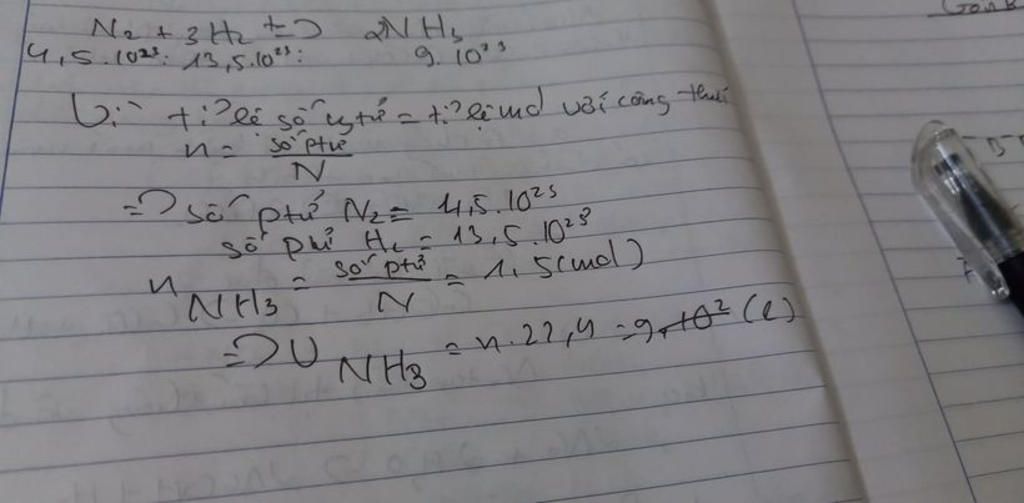 N₂ + 3H₂ t° => 2NH₃
4,5.10²³: 13,5.10²³: 9.10²³
Vì tỉ lệ số ptử = tỉ lệ mol với công thức
n = số ptử / N
=> số ptử N₂ = 4,5.10²³
số ptử H₂ = 13,5.10²³
n NH₃ = số ptử / N = 1,5 (mol)
=> V NH₃ = n.22,4 = 9,10² (l)